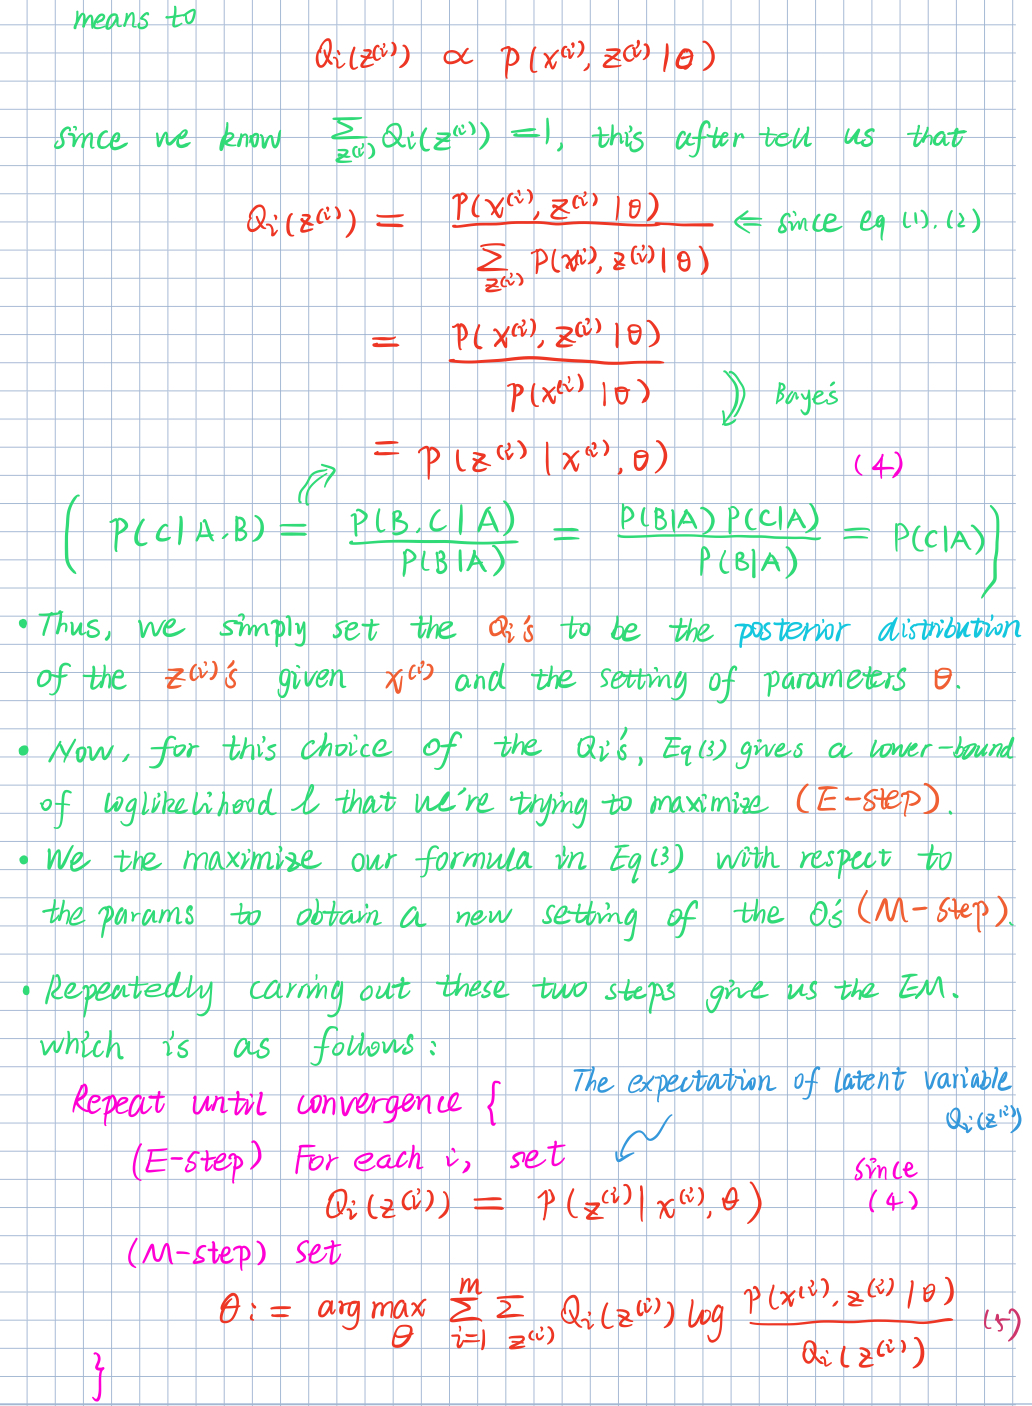 means to
Q_i(z^(i)) ∝ P(x^(i), z^(i) | θ)
since we know Σ_{z^(i)} Q_i(z^(i)) = 1, this after tell us that
Q_i(z^(i)) = P(x^(i), z^(i) | θ) / Σ_{z^(i)} P(x^(i), z^(i) | θ) ⇐ since eq (1). (2)
= P(x^(i), z^(i) | θ) / P(x^(i) | θ)
Baye's
= P(z^(i) | x^(i), θ) (4)
( P(C|A,B) = P(B,C|A) / P(B|A) = P(B|A) P(C|A) / P(B|A) = P(C|A) )
• Thus, we simply set the Q_i's to be the posterior distribution
of the z^(i)'s given x^(i) and the setting of parameters θ.
• Now, for this choice of the Q_i's, Eq (3) gives a lower-bound
of loglikelihood l that we're trying to maximize (E-step).
• We the maximize our formula in Eq (3) with respect to
the params to obtain a new setting of the θ's (M-step).
• Repeatedly carring out these two steps give us the EM.
which is as follows:
The expectation of latent variable
Repeat until convergence {
Q_i(z^(i))
(E-step) For each i, set
since
Q_i(z^(i)) = P(z^(i) | x^(i), θ) (4)
(M-step) set
θ := arg max_θ Σ_{i=1}^m Σ_{z^(i)} Q_i(z^(i)) log P(x^(i), z^(i) | θ) / Q_i(z^(i)) (5)
}